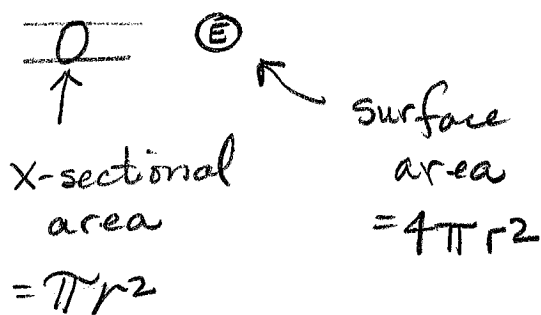 E
X-sectional
area
= πr²
surface
area
= 4πr²